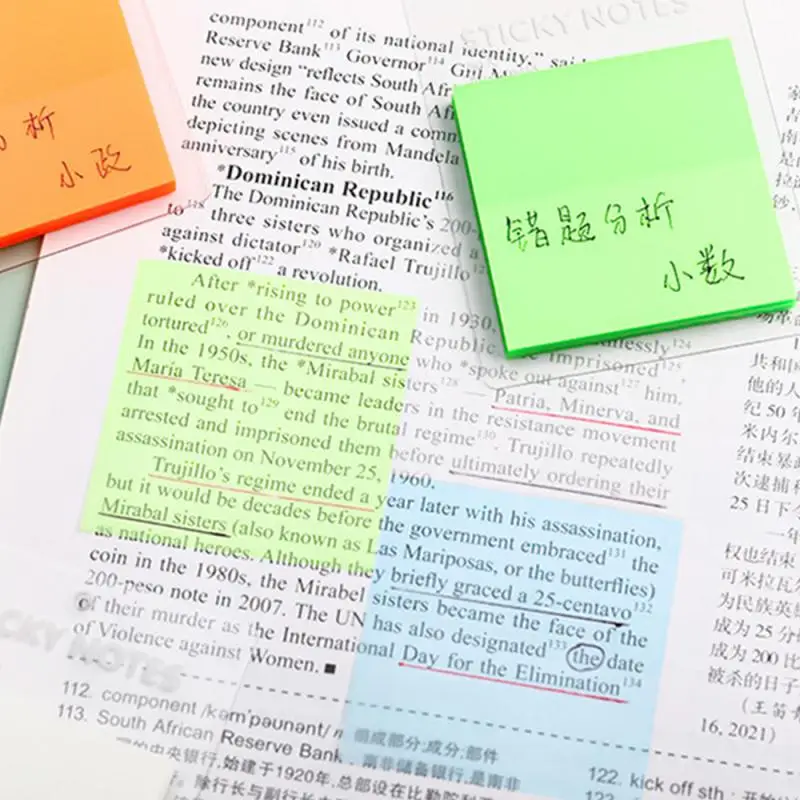 STICKY NOTES
component¹¹² of its national identity,"
Reserve Bank¹¹³ Governor¹¹⁴
new design "reflects South
remains the face of South
the country even issued a
depicting scenes from Mandela
anniversary¹¹⁵ of his birth.
*Dominican Republic¹¹⁶
The Dominican Republic's 200-
to¹¹⁸ three sisters who organized a
against dictator¹²⁰ *Rafael Trujillo
*kicked off¹²² a revolution.
析
小政
错题分析
小数
After *rising to power¹²³ in 1930,
ruled over the Dominican Republic
tortured¹²⁶, or murdered anyone who *spoke out against¹²⁷ him.
In the 1950s, the *Mirabal sisters¹²⁸ — Patria, Minerva, and
María Teresa — became leaders in the resistance movement
that *sought to¹²⁹ end the brutal regime¹³⁰. Trujillo repeatedly
arrested and imprisoned them before ultimately ordering their
assassination on November 25, 1960.
Trujillo's regime ended a year later with his assassination,
but it would be decades before the government embraced¹³¹ the
Mirabal sisters (also known as Las Mariposas, or the butterflies)
as national heroes. Although they briefly graced a 25-centavo¹³²
coin in the 1980s, the Mirabel sisters became the face of the
200-peso note in 2007. The UN has also designated¹³³ the date
of their murder as the International Day for the Elimination¹³⁴
of Violence against Women. ■
CKY NOTES
112. component /kəmˈpəʊnənt/ n 组成部分;成分;部件
113. South African Reserve Bank 南非储备银行,是南非
的中央银行,始建于1920年,总部设在比勒陀利
除行长与副行长
122. kick off sth
123.
共和国
他的人
纪 50 年
米内尔
结束暴
次逮捕
25 日下
一年
权也结束
可米拉
为民族英
成为 25 分
成为 200 比
被杀的日子
16, 2021)